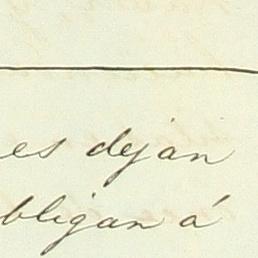 es dejan
bligan á